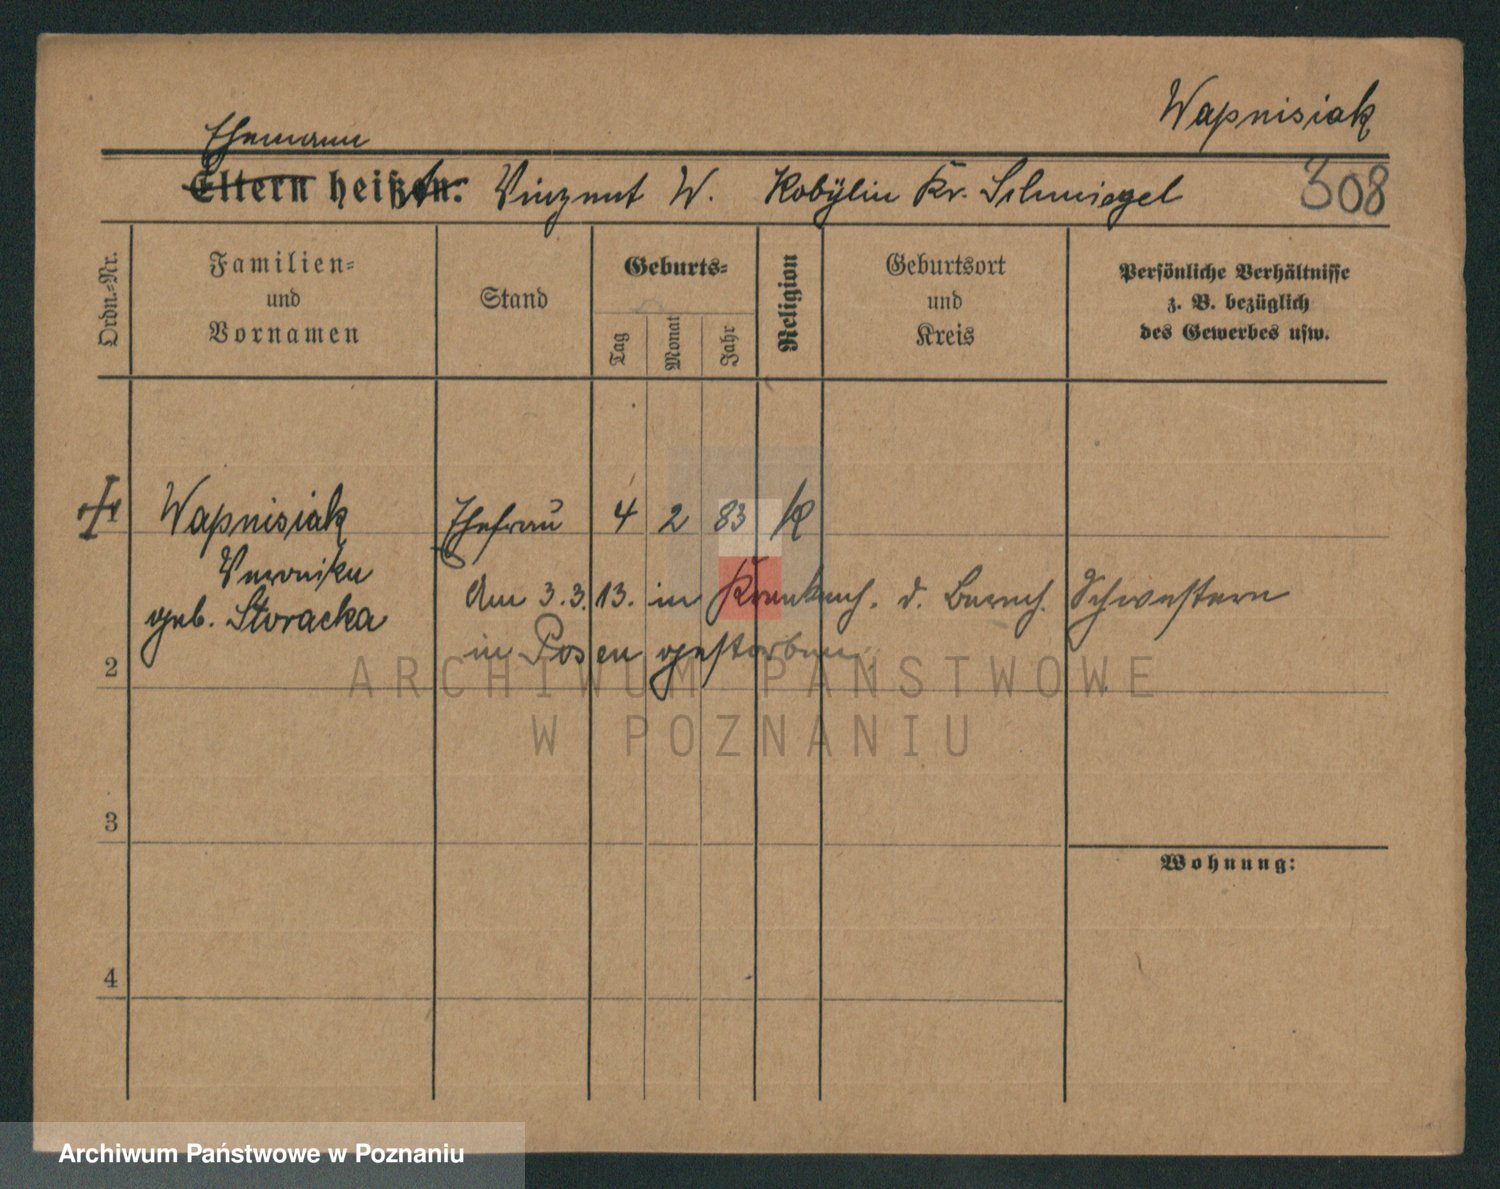 Wapnisiak
Ehemann
Eltern heißen: Vinzent W. Kobylin Kr. Schmiegel 308
Ordn.-Nr.
Familien=
und
Vornamen
Stand
Geburts=
Tag
Monat
Jahr
Religion
Geburtsort
und
Kreis
Persönliche Verhältnisse
z. B. bezüglich
des Gewerbes usw.
1 Wapnisiak Ehefrau 4 2 83 K
Veronika
geb. Storacka
Am 3.3.13. in Krankenh. d. Barmh. Schwestern
in Posen gestorben.
2
3
4
Wohnung:
ARCHIWUM PAŃSTWOWE
W POZNANIU
Archiwum Państwowe w Poznaniu